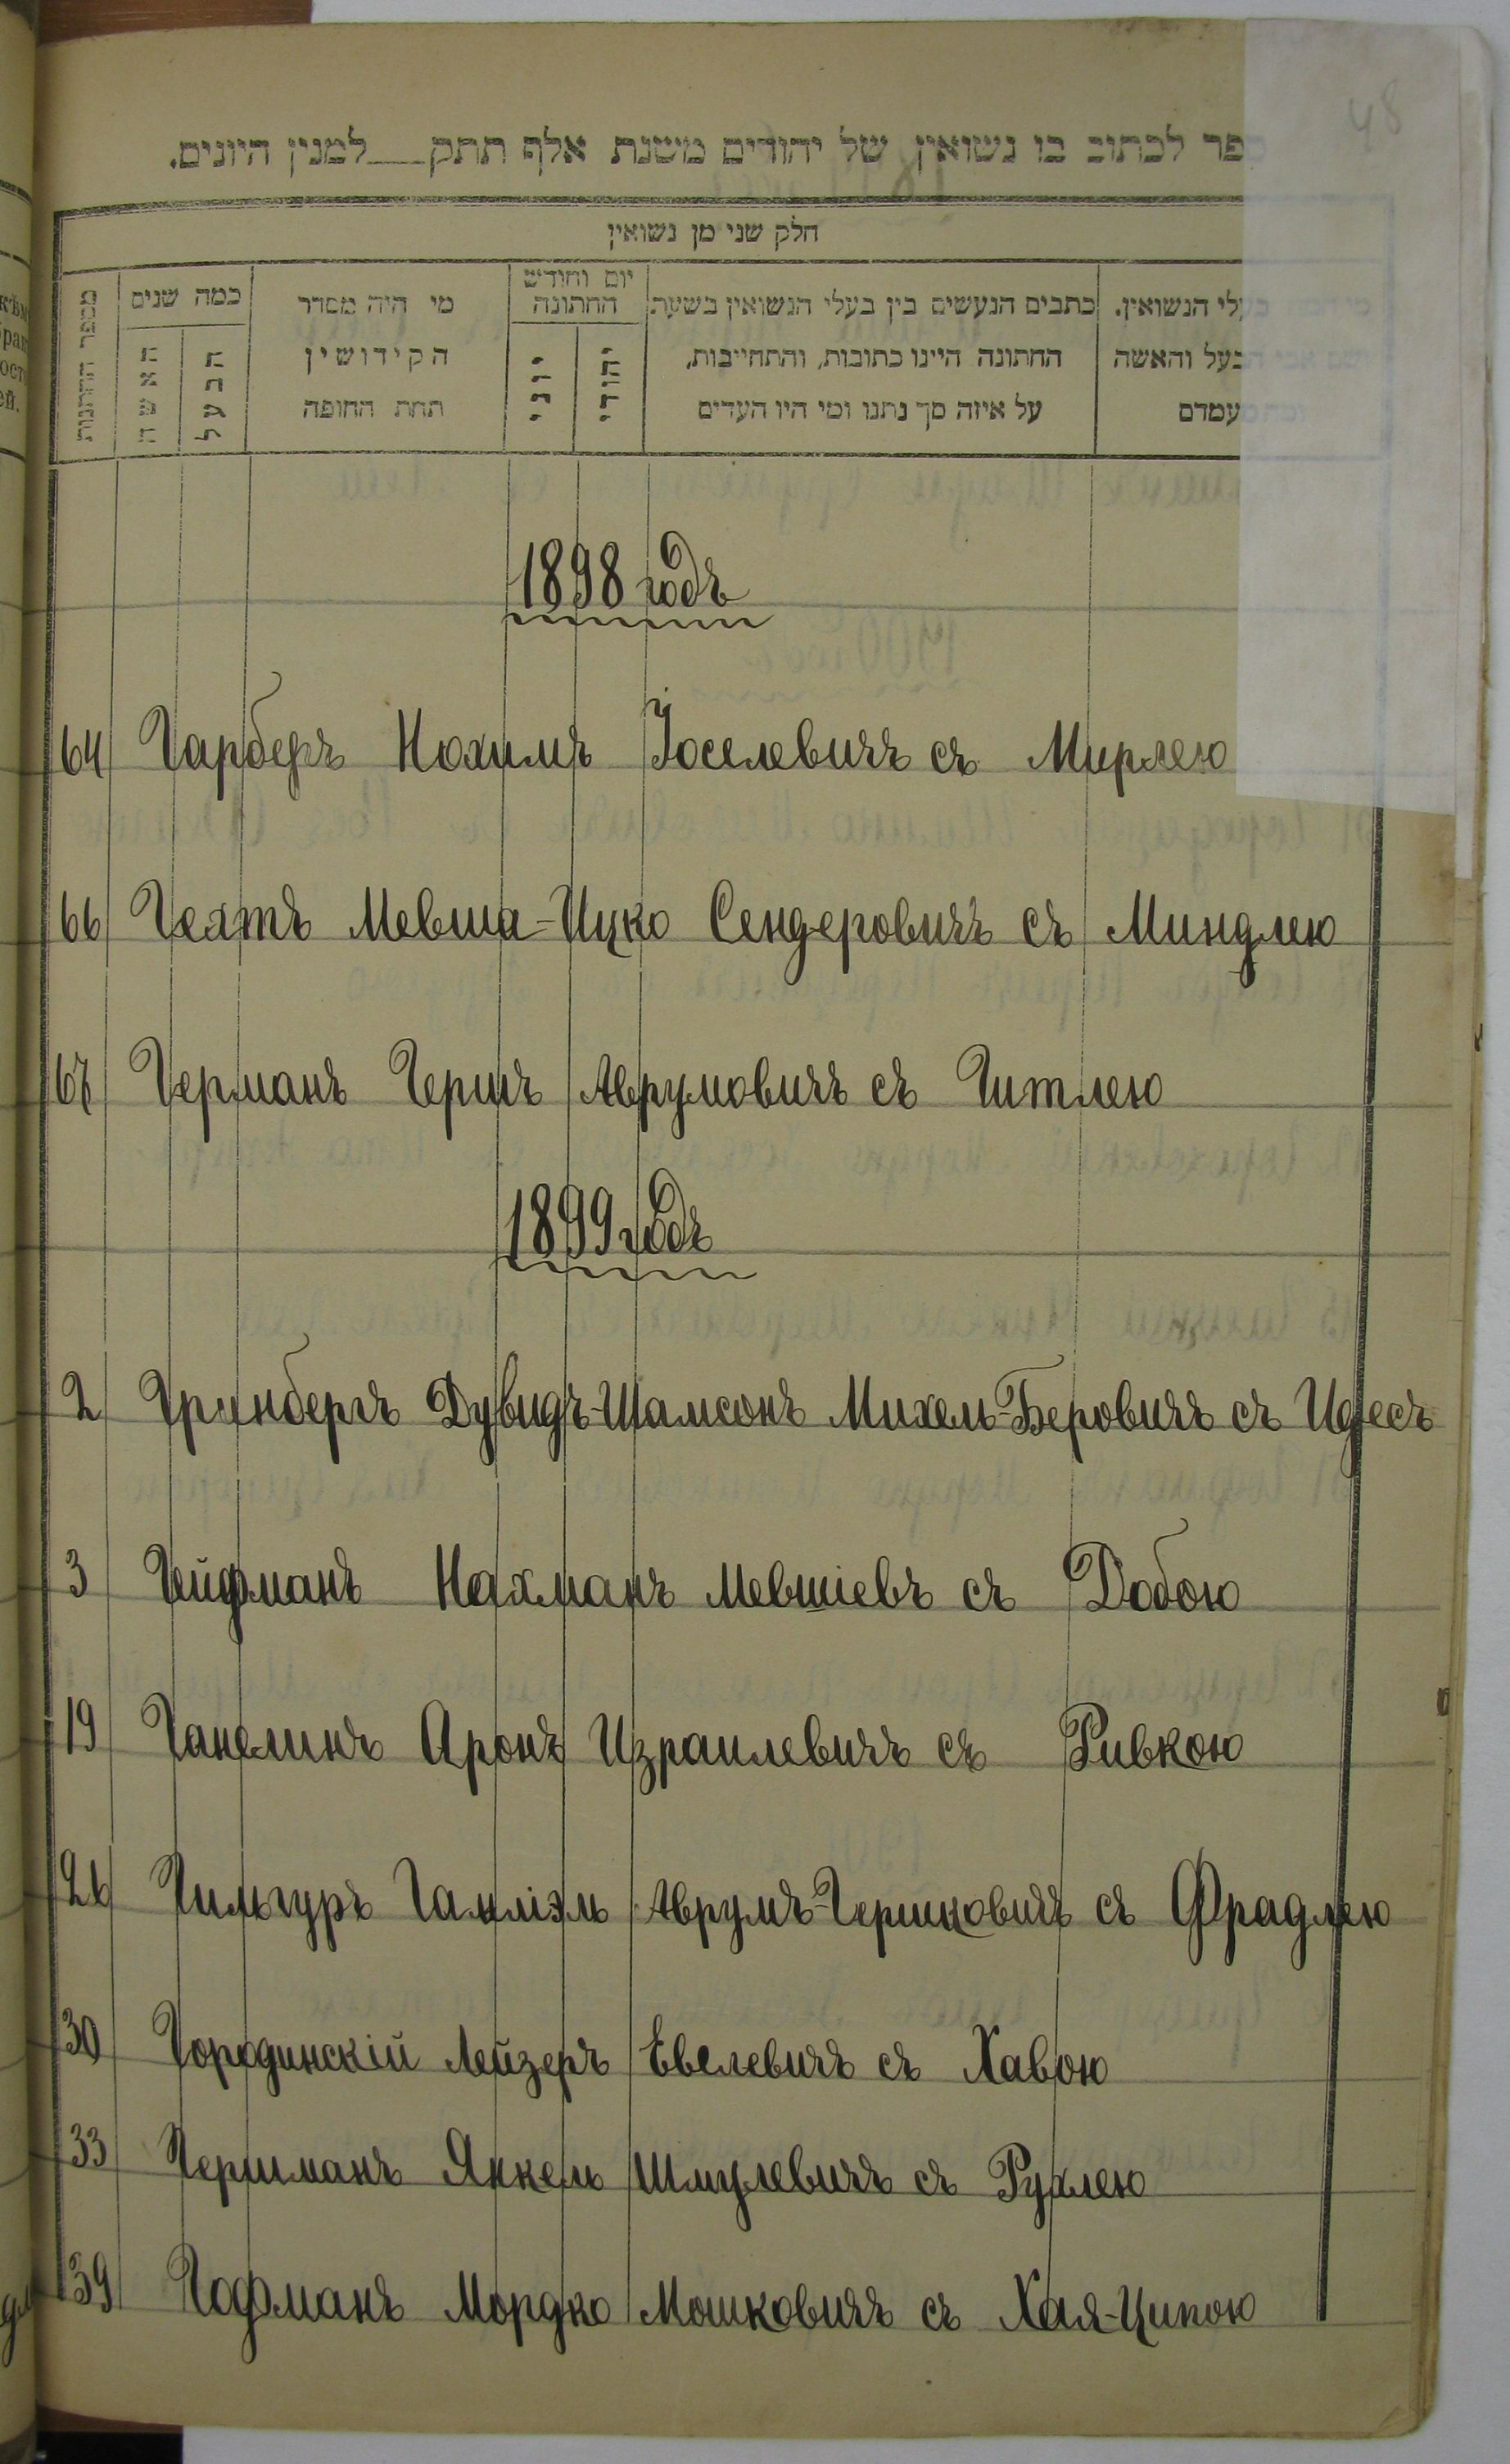 48
פר לכתוב בו נשואין של יהודים משנת אלף תתק למנין היונים.
חלק שני מן נשואין
מספר החתונות
כמה שנים
האשה
הבעל
מי היה מסדר הקידושין תחת החופה
יום וחודש החתונה
יוני
יהודי
כתבים הנעשים בין בעלי הנשואין בשעת החתונה היינו כתובות, והתחייבות, על איזה סך נתנו ומי היו העדים
עלי הנשואין.
הבעל והאשה
מעמדם
1898 годъ
64 Гарберъ Нохимъ Іоселевичъ съ Мирлею
66 Гехтъ Мевша-Ицко Сендеровичъ съ Миндлею
67 Германъ Гершъ Аврумовичъ съ Гитлею
1899 годъ
2 Гринбергъ Дувидъ-Шамсонъ Михель-Беровичъ съ Идесъ
3 Гейфманъ Нахманъ Мевшіевъ съ Добою
19 Ганелинъ Аронъ Израилевичъ съ Ривкою
26 Гильгуръ Гамліэль Аврумъ-Гершковичъ съ Фрадлею
30 Городинскій Лейзеръ Евелевичъ съ Хавою
33 Гершманъ Янкель Шмулевичъ съ Рухлею
39 Гофманъ Мордко Мошковичъ съ Хая-Ципою